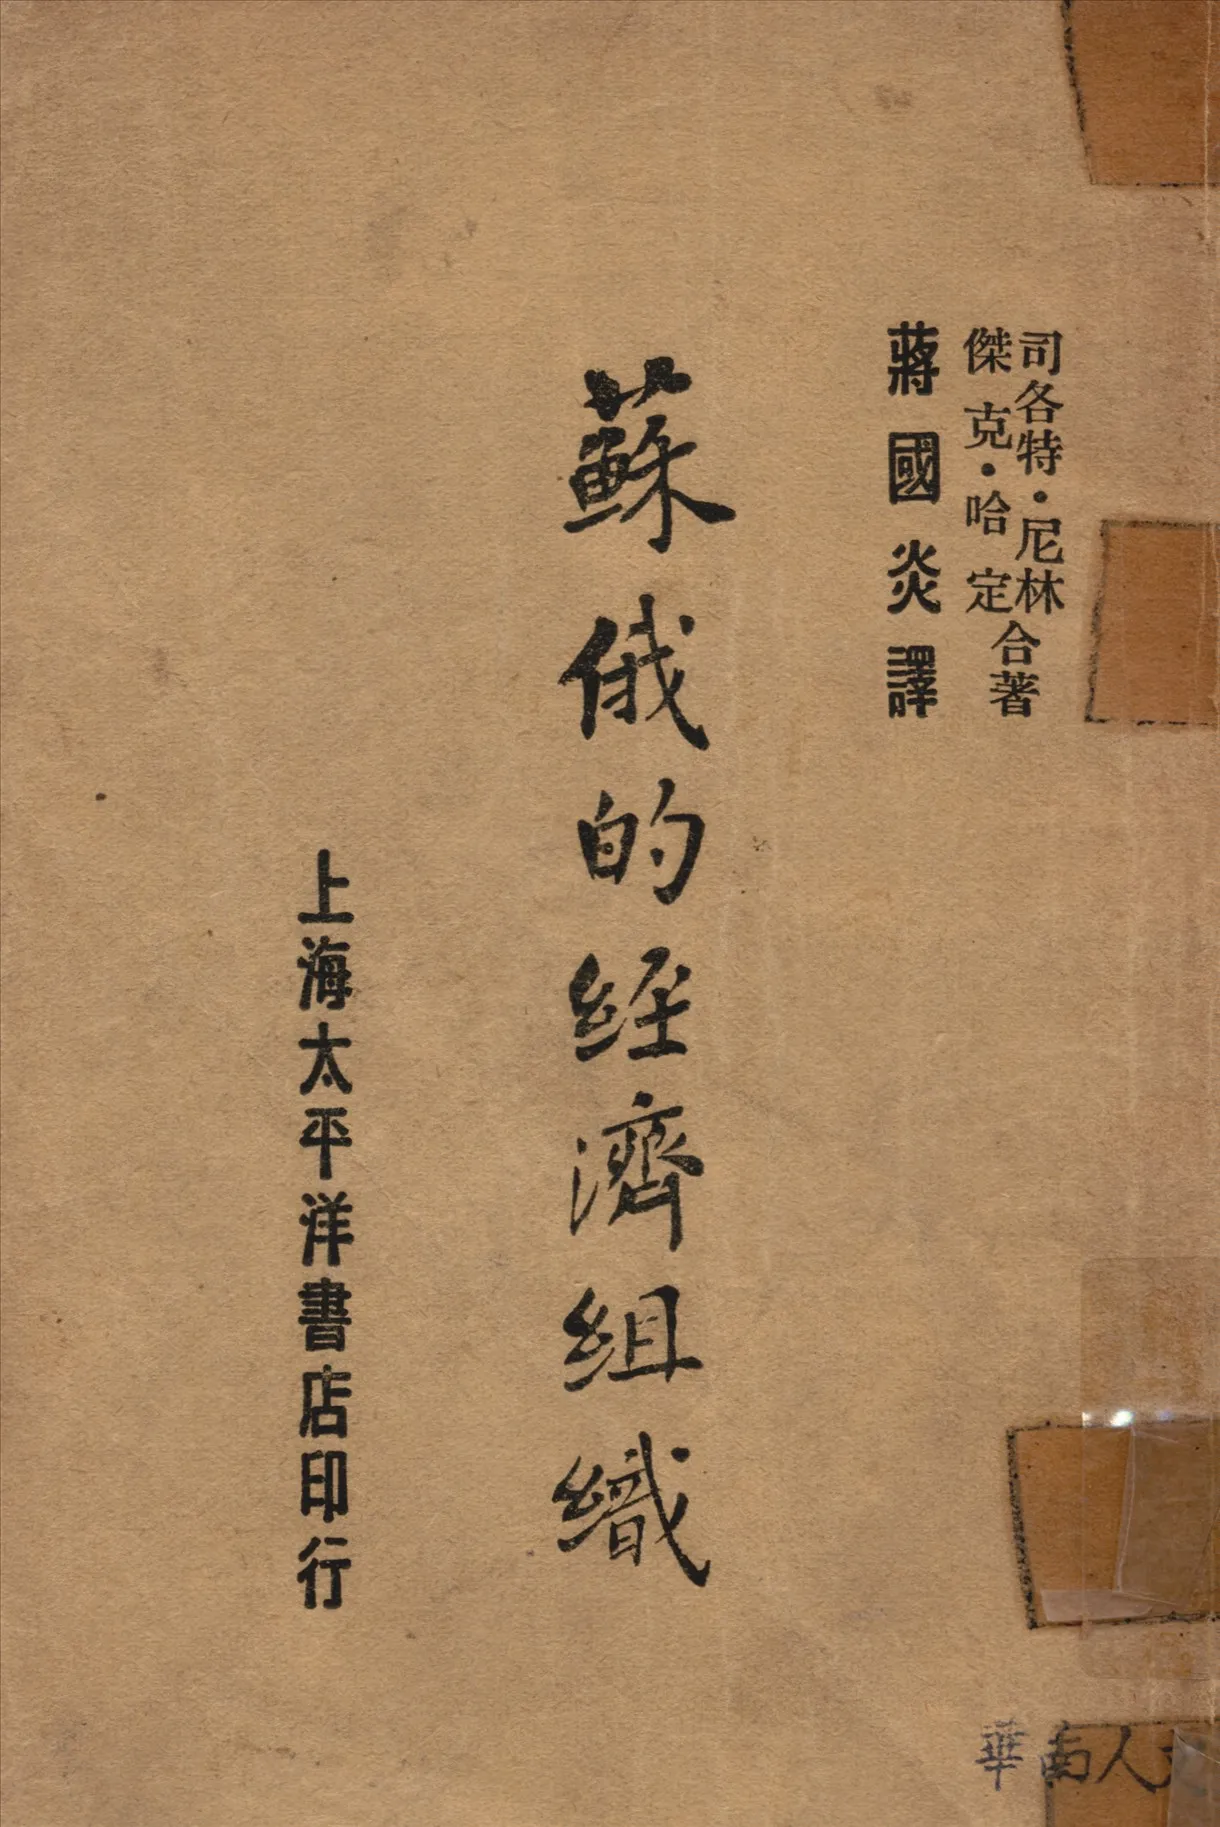 司各特・尼林
傑克・哈定
合著
蔣國炎譯
蘇俄的經濟組織
上海太平洋書店印行
華南人